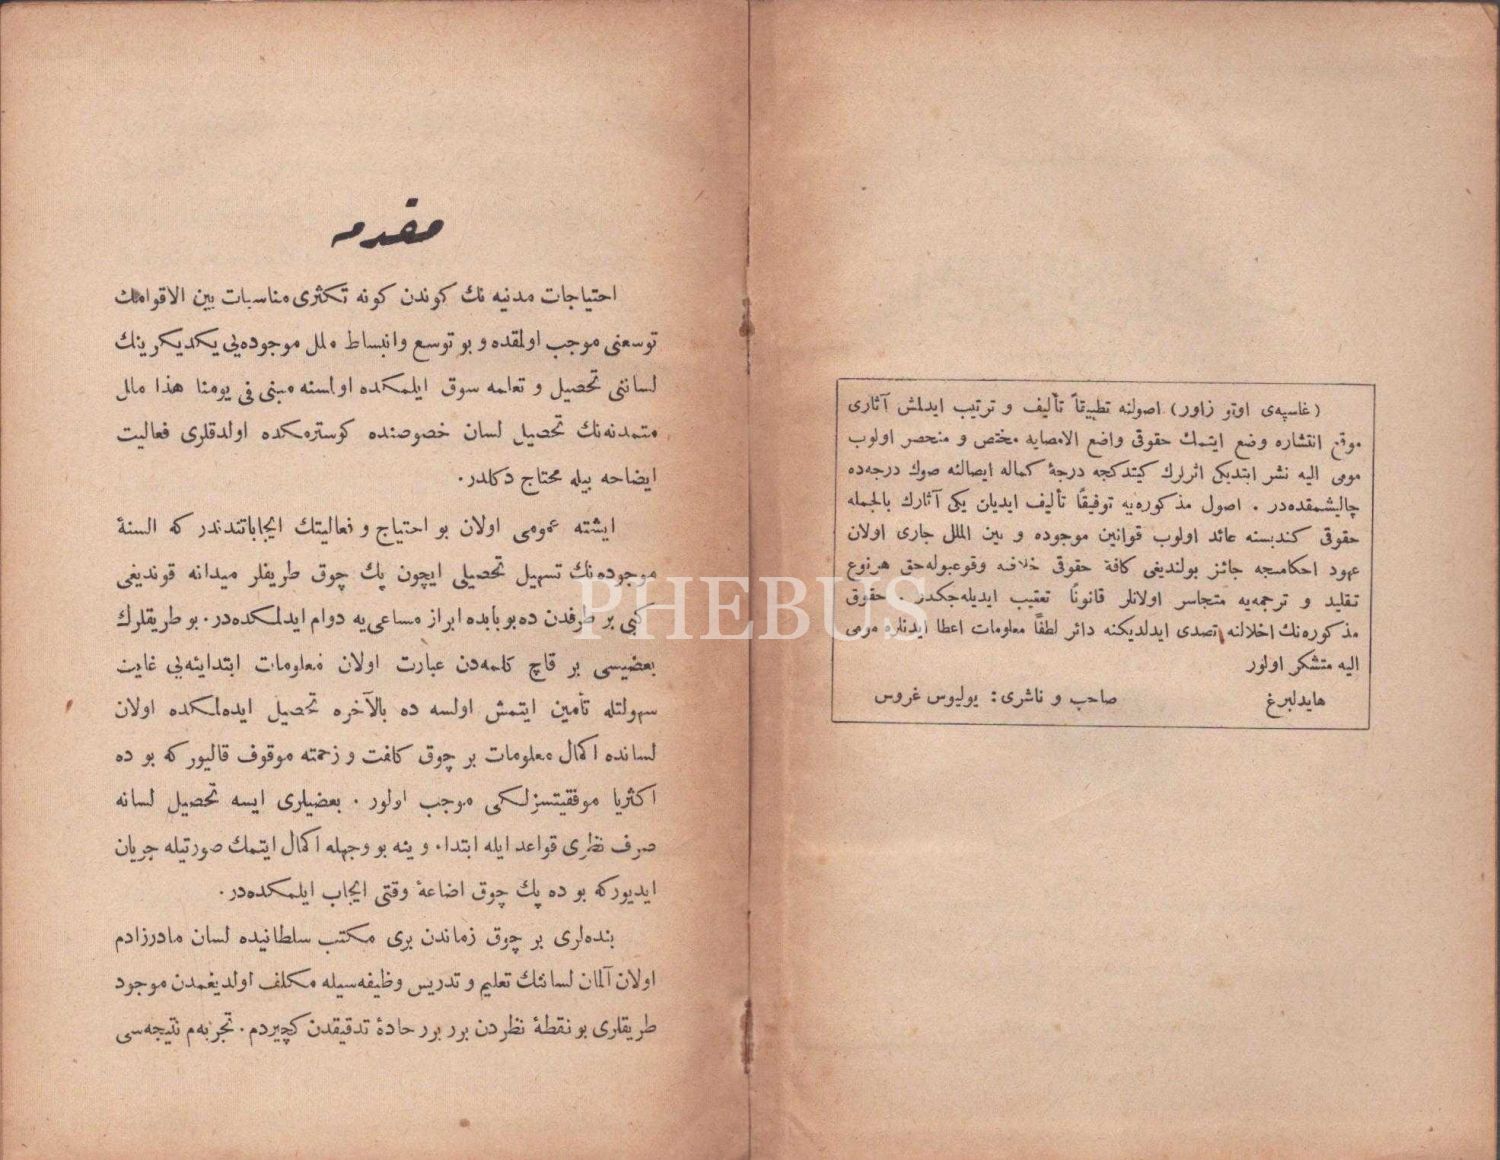 (غاسپه‌ی اوتو زاور) اصولنه تطبيقاً تأليف و ترتيب ايدلمش آثاری
موقع انتشاره وضع ايتمك حقوقی واضع الامضايه مختص و منحصر اولوب
مومی اليه نشر ابتديكی اثرلرك كيتدكجه درجۀ كماله ايصالنه صوك درجه‌ده
چاليشمقده‌در . اصول مذكوره‌يه توفيقاً تأليف ايديان يكی آثارك بالجمله
حقوقی كنديسنه عائد اولوب قوانين موجوده و بين الملل جاری اولان
عهود احكامنجه جائز بولنديغی كافۀ حقوقی خلافنه وقوعبوله‌جق هرنوع
تقليد و ترجمه‌يه متجاسر اولانلر قانونًا تعقيب ايديله‌جكدر . حقوق
مذكوره‌نك اخلالنه تصدی ايدلديكنه دائر لطفًا معلومات اعطا ايدنلره مومی
اليه متشكر اولور
هايدلبرغ صاحب و ناشری: يوليوس غروس
مقدمه
احتياجات مدنيه نك كوندن كونه تكثری مناسبات بين الاقوامك
توسعنی موجب اولمقده و بو توسع وانبساط ملل موجوده‌يی يكديكرينك
لساننی تحصيل و تعلمه سوق ايلمكده اولسنه مبنی فی يومنا هذا ملل
متمدنه‌نك تحصيل لسان خصوصنده كوسترمكده اولدقلری فعاليت
ايضاحه بيله محتاج دكلدر.
ايشته عمومی اولان بو احتياج و فعاليتك ايجاباتندندر كه السنۀ
موجوده‌نك تسهيل تحصيلی ايچون پك چوق طريقلر ميدانه قونديغی
كبی بر طرفدن ده‌بوبابده ابراز مساعی‌يه دوام ايدلمكده‌در. بو طريقلرك
بعضيسی بر قاچ كلمه‌دن عبارت اولان معلومات ابتدائيه‌يی غايت
سهولتله تأمين ايتمش اولسه ده بالآخره تحصيل ايده‌لمكده اولان
لسانده اكمال معلومات بر چوق كلفت و زحمته موقوف قاليور كه بو ده
اكثريا موفقيتسزلكی موجب اولور . بعضيلری ايسه تحصيل لسانه
صرف نظری قواعد ايله ابتدا. و ينه بو وجهله اكمال ايتمك صورتيله جريان
ايديوركه بو ده پك چوق اضاعۀ وقتی ايجاب ايلمكده‌در.
بنده‌لری بر چوق زماندن بری مكتب سلطانيده لسان مادرزادم
اولان آلمان لساننك تعليم و تدريس وظيفه‌سيله مكلف اولديغمدن موجود
طريقلری بو نقطۀ نظردن برر برر حادۀ تدقيقدن كچيردم. تجربه‌م نتيجه‌سی
PHEBUS